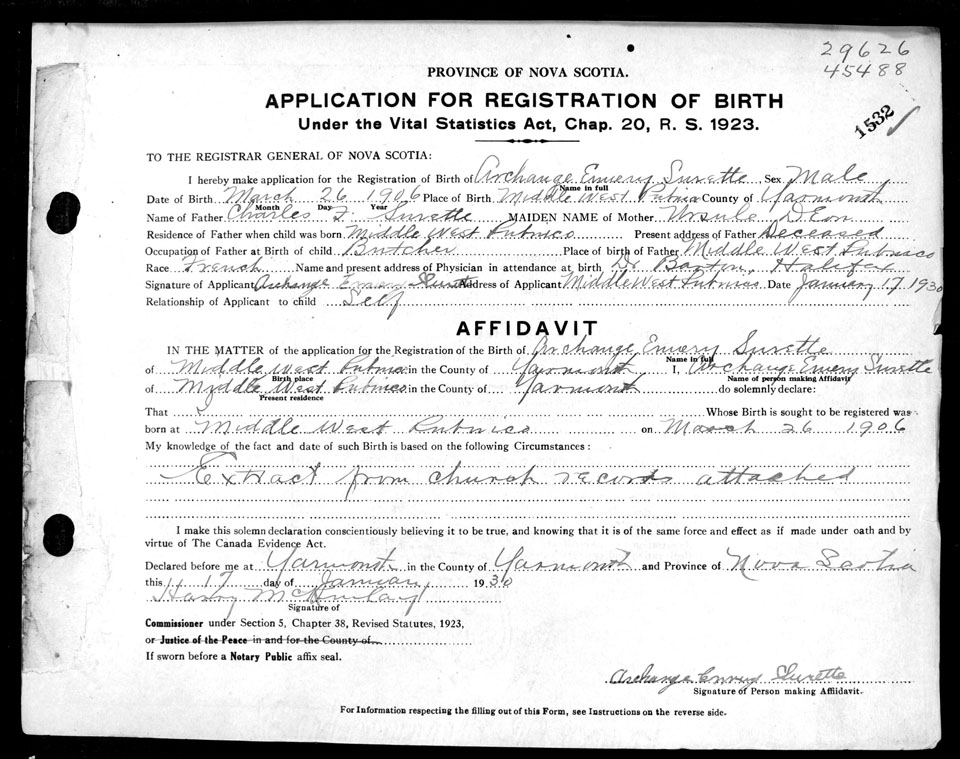 29626
45488
1532
PROVINCE OF NOVA SCOTIA.
APPLICATION FOR REGISTRATION OF BIRTH
Under the Vital Statistics Act, Chap. 20, R. S. 1923.
TO THE REGISTRAR GENERAL OF NOVA SCOTIA:
I hereby make application for the Registration of Birth of Archange Emery Surette Sex Male
Name in full
Date of Birth March 26 1906 Place of Birth Middle West Pubnico County of Yarmouth
Month Day Year
Name of Father Charles Surette MAIDEN NAME of Mother Ursule DEon
Residence of Father when child was born Middle West Pubnico Present address of Father Deceased
Occupation of Father at Birth of child Butcher Place of birth of Father Middle West Pubnico
Race French Name and present address of Physician in attendance at birth Dr Barton, Halifax
Signature of Applicant Archange Emery Surette Address of Applicant Middle West Pubnico Date January 17 1930
Relationship of Applicant to child Self
AFFIDAVIT
IN THE MATTER of the application for the Registration of the Birth of Archange Emery Surette
Name in full
of Middle West Pubnico in the County of Yarmouth I, Archange Emery Surette
Birth place Name of person making Affidavit
of Middle West Pubnico in the County of Yarmouth do solemnly declare:
Present residence
That I Whose Birth is sought to be registered was
born at Middle West Pubnico on March 26 1906
My knowledge of the fact and date of such Birth is based on the following Circumstances:
Extract from church records attached
I make this solemn declaration conscientiously believing it to be true, and knowing that it is of the same force and effect as if made under oath and by
virtue of The Canada Evidence Act.
Declared before me at Yarmouth in the County of Yarmouth and Province of Nova Scotia
this 17 day of January 1930
Harry
Signature of
Commissioner under Section 5, Chapter 38, Revised Statutes, 1923,
or Justice of the Peace in and for the County of
If sworn before a Notary Public affix seal.
Archange Emery Surette
Signature of Person making Affidavit.
For Information respecting the filling out of this Form, see Instructions on the reverse side.